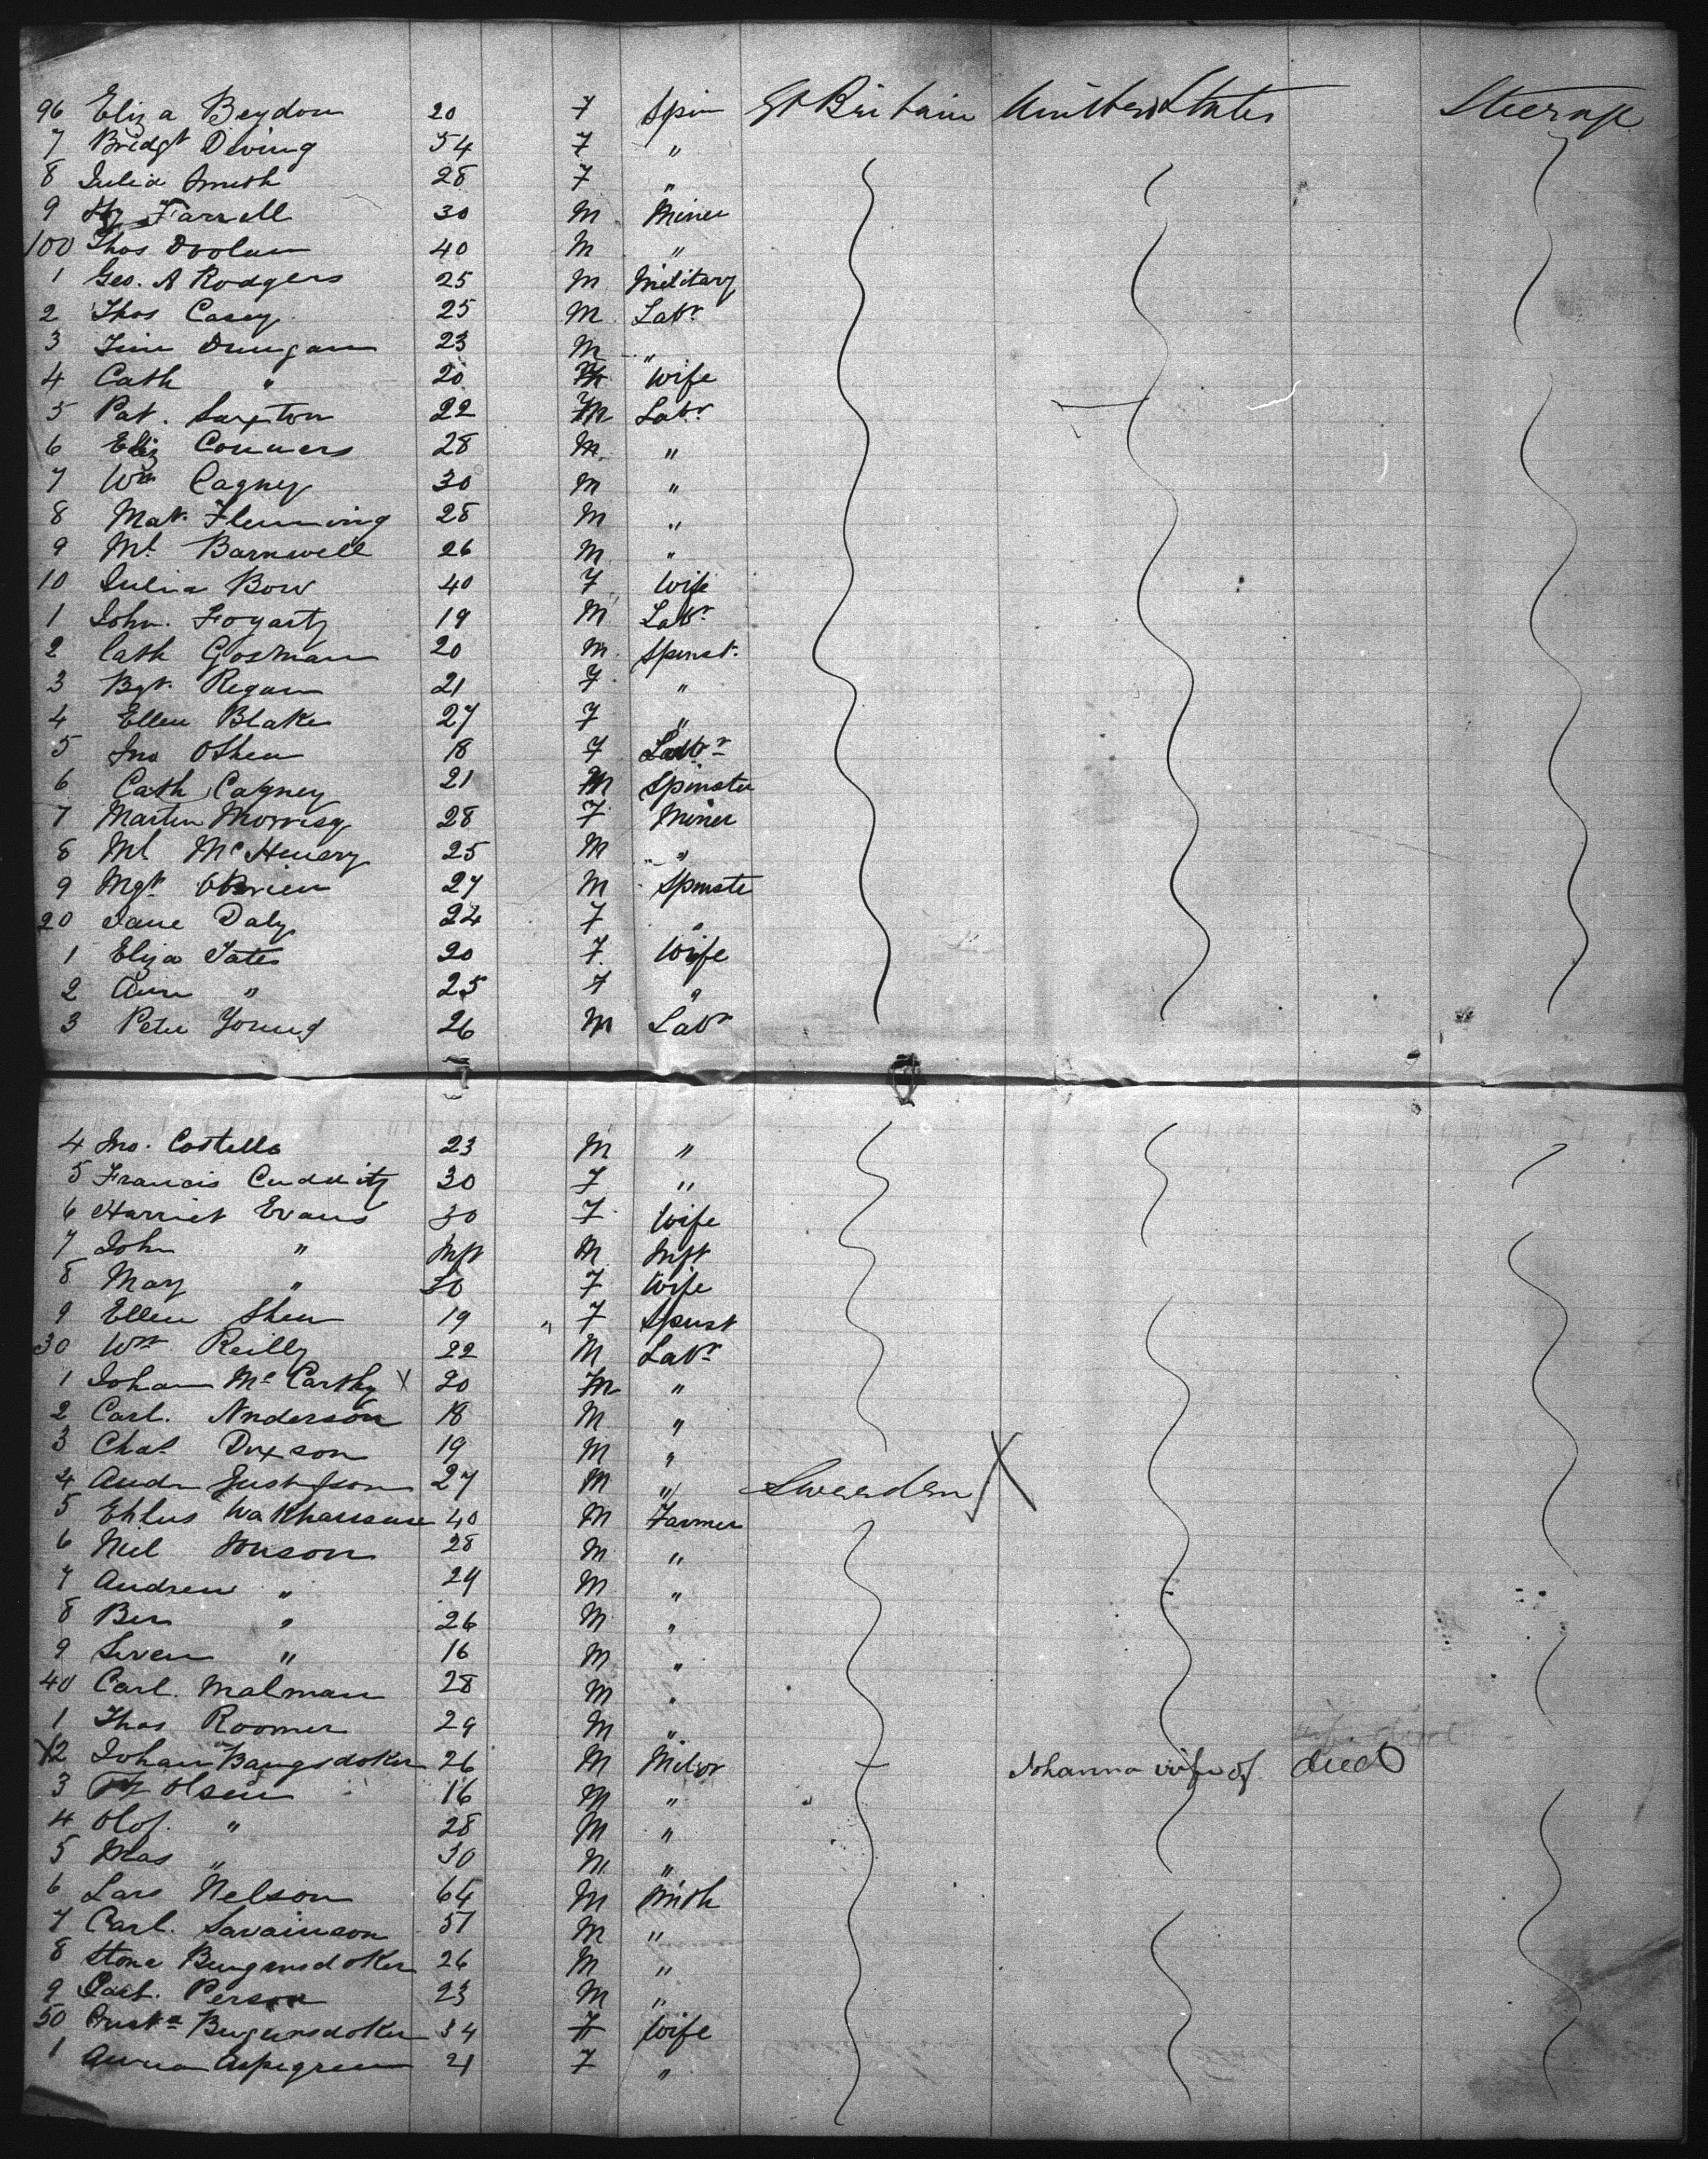 96 Eliza Beydon 20 F Spin Gt Britain United States Steerage
7 Bridgt Diving 54 F "
8 Julia Smith 28 F "
9 Hy Farrell 30 M Miner
100 Thos Doolan 40 M "
1 Geo. A Rodgers 25 M Military
2 Thos Casey 25 M Labr
3 Jim Dungan 23 M "
4 Cath " 20 Wife
5 Pat. Saxton 22 M Labr
6 Eliz Conners 28 M "
7 Wm Cagney 30 M "
8 Mat. Flemming 28 M "
9 Ml Barnwell 26 M "
10 Julia Bow 40 F Wife
1 John. Fogarty 19 M Labr
2 Cath Gosman 20 M Spinst.
3 Bgt. Regan 21 F "
4 Ellen Blake 27 F "
5 Jno OShea 18 F Labr
6 Cath Cagney 21 M Spinster
7 Martin Morrisy 28 F Miner
8 Ml McHenery 25 M "
9 Mgt OBrien 27 M Spinste
20 Jane Daly 24 F "
1 Eliza Yates 20 F Wife
2 Ann " 25 F "
3 Peter Young 26 M Labr
4 Jno. Costello 23 M "
5 Francis Cudduity 30 F "
6 Harriet Evans 30 F Wife
7 John " Inft M Inft
8 Mary " 30 F Wife
9 Ellen Shea 19 " F Spinst
30 Wm Reilly 22 M Labr
1 Johan McCarthy X 20 M "
2 Carl. Anderson 18 M "
3 Chas Duxson 19 M "
4 Andr Gustafson 27 M " Sweeden X
5 Ehlus Wakhausaun 40 M Farmer
6 Niel Jonson 28 M "
7 Andrew " 24 M "
8 Ber " 26 M "
9 Sven " 16 M "
40 Carl. Malman 28 M "
1 Thos Roomer 29 M "
X2 Johan Bangsdoker 26 M Johanna wife of died
3 Olsen 16 M "
4 Olof. " 28 M "
5 Mas " 30 M "
6 Lars Nelson 64 M Smith
7 Carl. Savainson 51 M "
8 Stone Bungensdoker 26 M "
9 Carl. Person 23 M "
50 Bugensdoker 34 F Wife
1 Anna Aspegreen 21 F "